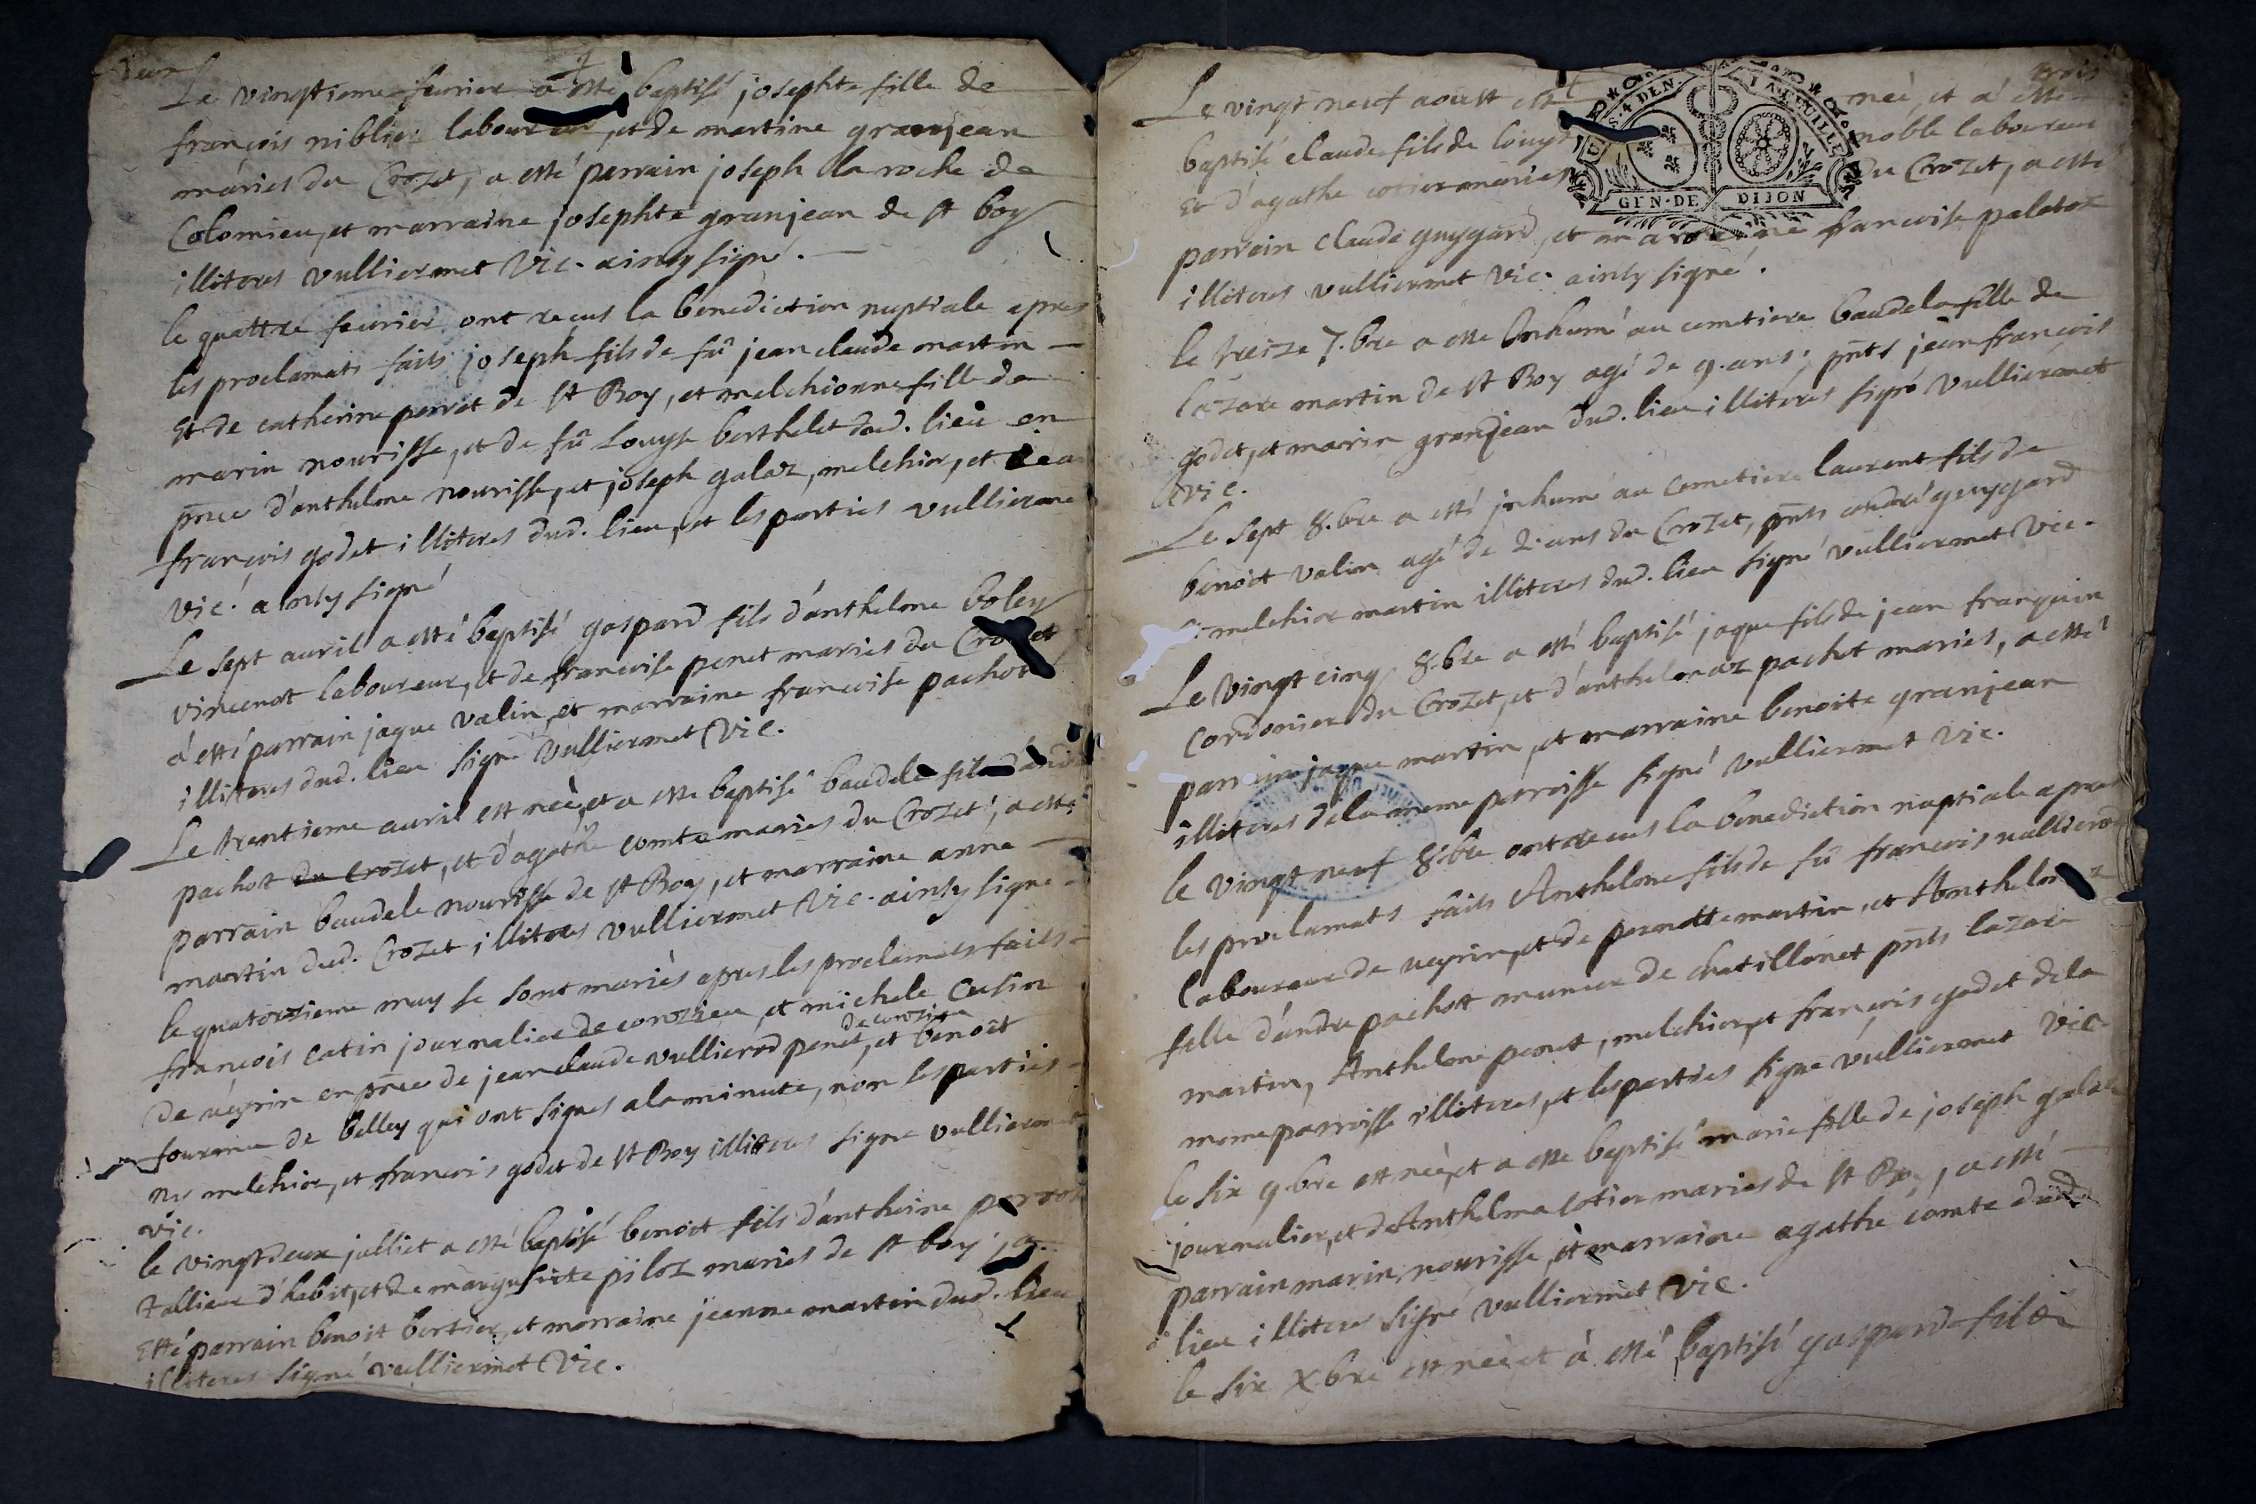 deux
Le vingtieme feurier a esté baptisé josephte fille de
françois niblier laboureur, et de martine granjean
mariés du Crozet, a esté parrain joseph la roche de
Colomieu, et marraine josephte granjean de st boy
illiteres vulliermet vic. ainsy signé.
le quattre feurier ont recus la benediction nuptiale apres
les proclamats faits joseph fils de fû jean claude martin
et de catherine perret de st Boy, et melchionne fille de
marin nourisse, et de fû Louyse berthelet dud. lieu en
pnce d'anthelme nourisse, et joseph galaz, melchior, et
françois godet illiteres dud. lieu, et les parties vullierme
vic. ainsy signé
Le sept auril a esté baptisé gaspard fils d'anthelme boley
vincenot laboureur, et de françoise penet mariés du Crozet
a esté parrain jaque valin, et marraine françoise pachot
illiteres dud. lieu signé vulliermet vic.
Le trentieme auril est neé, et a esté baptisé baudele fils d'andré
pachot du Crozet, et d'agathe comte mariés du Crozet, a esté
parrain baudele nourisse de st Boy, et marraine anne
martin dud. Crozet illiteres vulliermet vic. ainsy signé
le quatorzieme may se sont mariés apres les proclamats faits
françois catin journalier de conozieu, et michele cusin
de conozieu
de veyrin en pnce de jean claude vullierod penet, et benoit
fournier de belley qui ont signés a la minute, non les parties
ny melchior, et françois godet de st Boy illiteres signé vulliermet
vic.
le vingt deux julliet a esté baptisé benoit fils d'antheine perrot
tallieur d'habit, et de marguerite piloz mariés de st boy, a
esté parrain benoit bertier, et marraine jeanne martin dud. lieu
illiteres signé vulliermet vic.
trois
U. S. 4 DEN. LA FEUILLE
GEN. DE DIJON
Le vingt neuf aoust est neé, et a esté
baptisé claude fils de louys noble laboureur
et d'agathe cotier mariés du Crozet, a esté
parrain claude guygard, et marraine françoise paletoz
illiteres vulliermet vic. ainsy signé.
le treize 7.bre a esté Inhumé au cemetiere baudela fille de
lazare martin de st Boy agé de 9. ans, pnts jean françois
godet, et marin grandjean dud. lieu illiteres signé vulliermet
vic.
Le sept 8.bre a esté jnhumé au cemetiere laurent fils de
benoit valin agé de 2. ans du Crozet, pnts andré guygard
melchior martin illiteres dud. lieu signé vulliermet vic.
Le vingt cinq 8.bre a esté baptisé jaque fils de jean françois
cordonier du Crozet, et d'anthelmaz pachot mariés, a esté
parrain jaque martin, et marraine benoite granjean
illiteres de la meme parroisse signé vulliermet vic.
le vingt neuf 8.bre ont recus la benediction nuptiale apres
les proclamats faits Anthelme fils de fû françois vullierod
laboureur de veyrin, et de pernette martin, et Anthelmaz
fille d'andre pachot munier de chatillonet pnts lazare
martin, Anthelme penet, melchior, et françois godet de la
meme parroisse illiteres, et les parties signé vulliermet vic.
le six 9.bre est neé, et a esté baptisé marie fille de joseph galaz
journalier, et de Anthelma cotier mariés de st Boy, a esté
parrain marin nourisse, et marraine agathe comte dud.
lieu illiteres signé vulliermet vic.
le six X.bre est neé et a esté baptisé gasparde fille